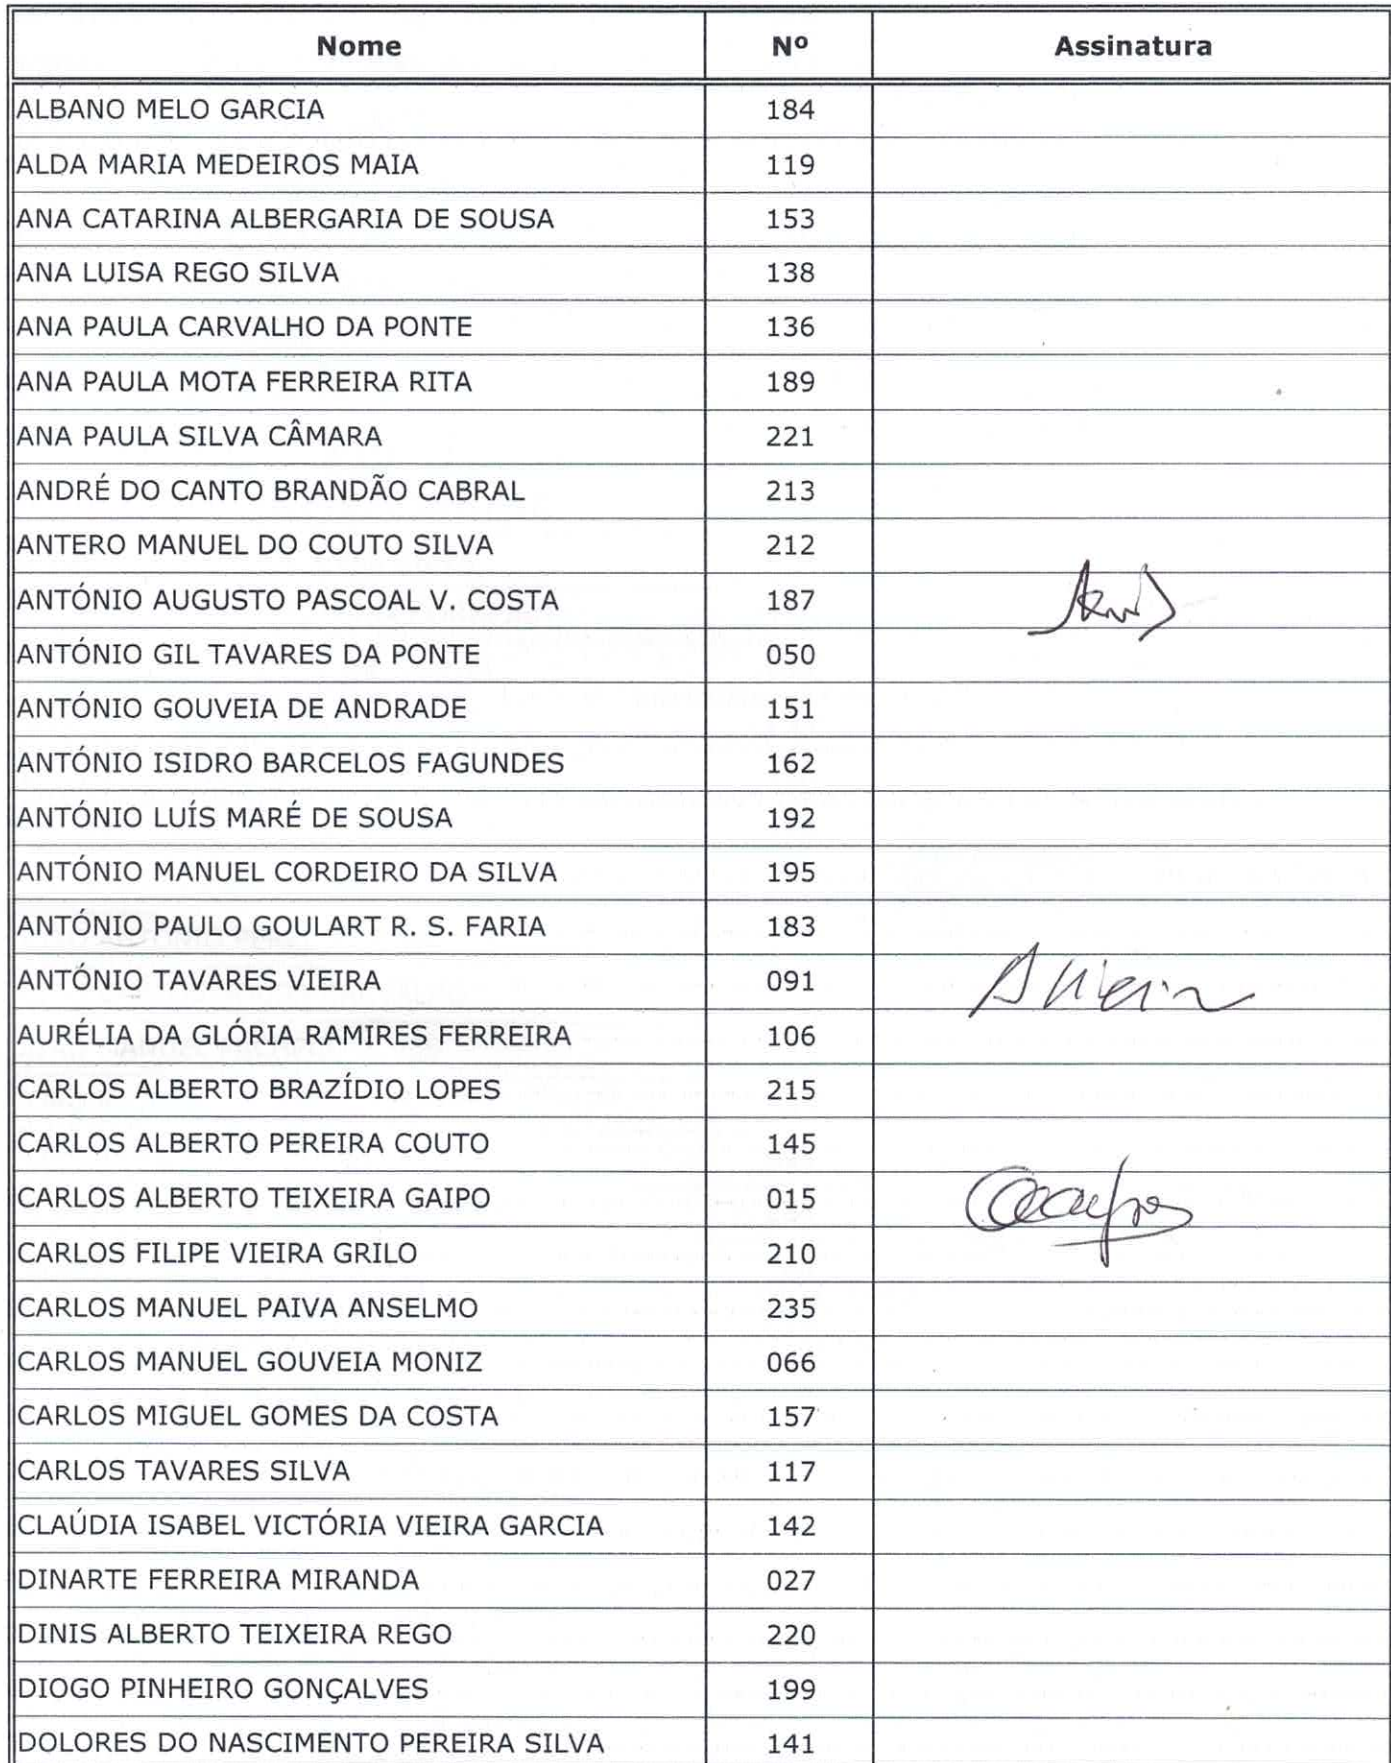 Nome Nº Assinatura
ALBANO MELO GARCIA 184
ALDA MARIA MEDEIROS MAIA 119
ANA CATARINA ALBERGARIA DE SOUSA 153
ANA LUISA REGO SILVA 138
ANA PAULA CARVALHO DA PONTE 136
ANA PAULA MOTA FERREIRA RITA 189
ANA PAULA SILVA CÂMARA 221
ANDRÉ DO CANTO BRANDÃO CABRAL 213
ANTERO MANUEL DO COUTO SILVA 212
ANTÓNIO AUGUSTO PASCOAL V. COSTA 187
ANTÓNIO GIL TAVARES DA PONTE 050
ANTÓNIO GOUVEIA DE ANDRADE 151
ANTÓNIO ISIDRO BARCELOS FAGUNDES 162
ANTÓNIO LUÍS MARÉ DE SOUSA 192
ANTÓNIO MANUEL CORDEIRO DA SILVA 195
ANTÓNIO PAULO GOULART R. S. FARIA 183
ANTÓNIO TAVARES VIEIRA 091
AURÉLIA DA GLÓRIA RAMIRES FERREIRA 106
CARLOS ALBERTO BRAZÍDIO LOPES 215
CARLOS ALBERTO PEREIRA COUTO 145
CARLOS ALBERTO TEIXEIRA GAIPO 015
CARLOS FILIPE VIEIRA GRILO 210
CARLOS MANUEL PAIVA ANSELMO 235
CARLOS MANUEL GOUVEIA MONIZ 066
CARLOS MIGUEL GOMES DA COSTA 157
CARLOS TAVARES SILVA 117
CLAÚDIA ISABEL VICTÓRIA VIEIRA GARCIA 142
DINARTE FERREIRA MIRANDA 027
DINIS ALBERTO TEIXEIRA REGO 220
DIOGO PINHEIRO GONÇALVES 199
DOLORES DO NASCIMENTO PEREIRA SILVA 141